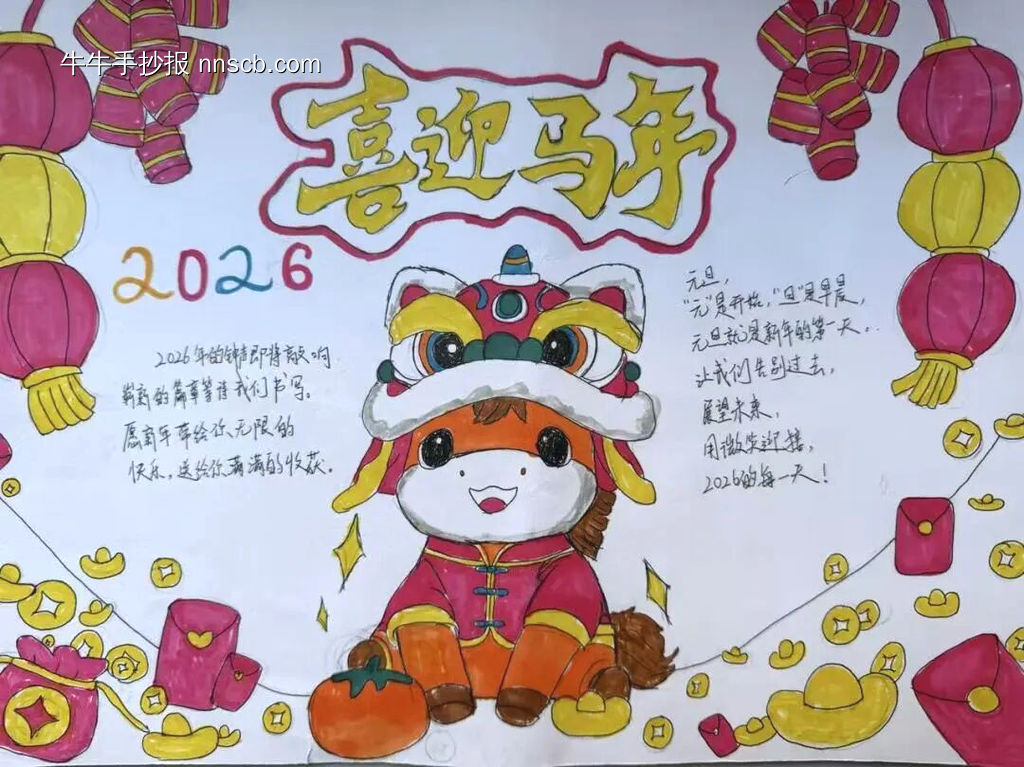 牛牛手抄报 nnscb.com
喜迎马年
2026
2026年的钟声即将敲响
崭新的篇章等待我们书写。
愿新年带给你无限的
快乐,送给你满满的收获。
元旦,
"元"是开始,"旦"是早晨,
元旦就是新年的第一天。
让我们告别过去,
展望未来,
用微笑迎接,
2026的每一天!